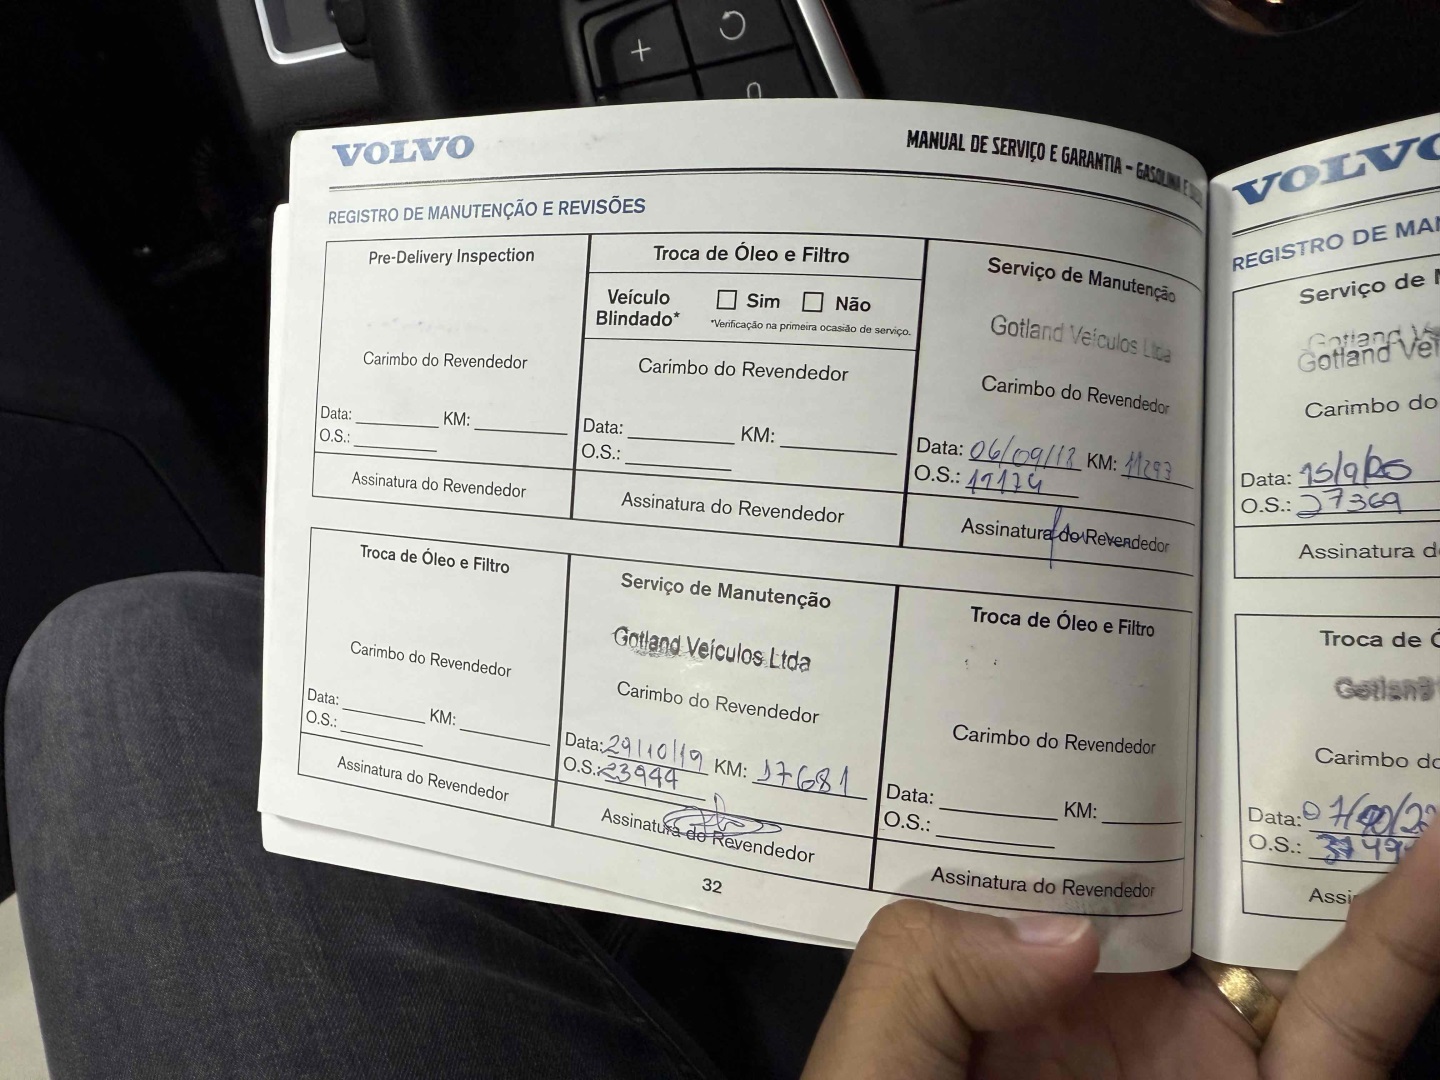 VOLVO
MANUAL DE SERVIÇO E GARANTIA – GASOLINA E
REGISTRO DE MANUTENÇÃO E REVISÕES
Pre-Delivery Inspection
Carimbo do Revendedor
Data: KM:
O.S.:
Assinatura do Revendedor
Troca de Óleo e Filtro
Veículo Blindado* Sim Não
*Verificação na primeira ocasião de serviço.
Carimbo do Revendedor
Data: KM:
O.S.:
Assinatura do Revendedor
Serviço de Manutenção
Gotland Veículos Ltda
Carimbo do Revendedor
Data: 06/09/18 KM: 11293
O.S.: 17174
Assinatura do Revendedor
Troca de Óleo e Filtro
Carimbo do Revendedor
Data: KM:
O.S.:
Assinatura do Revendedor
Serviço de Manutenção
Gotland Veículos Ltda
Carimbo do Revendedor
Data: 29/10/19 KM: 17681
O.S.: 23944
Assinatura do Revendedor
Troca de Óleo e Filtro
Carimbo do Revendedor
Data: KM:
O.S.:
Assinatura do Revendedor
32
VOLVO
REGISTRO DE MA
Serviço de
Gotland Veí
Carimbo do
Data: 15/9/20
O.S.: 27369
Assinatura d
Troca de
Carimbo do
Data:
O.S.:
Assi